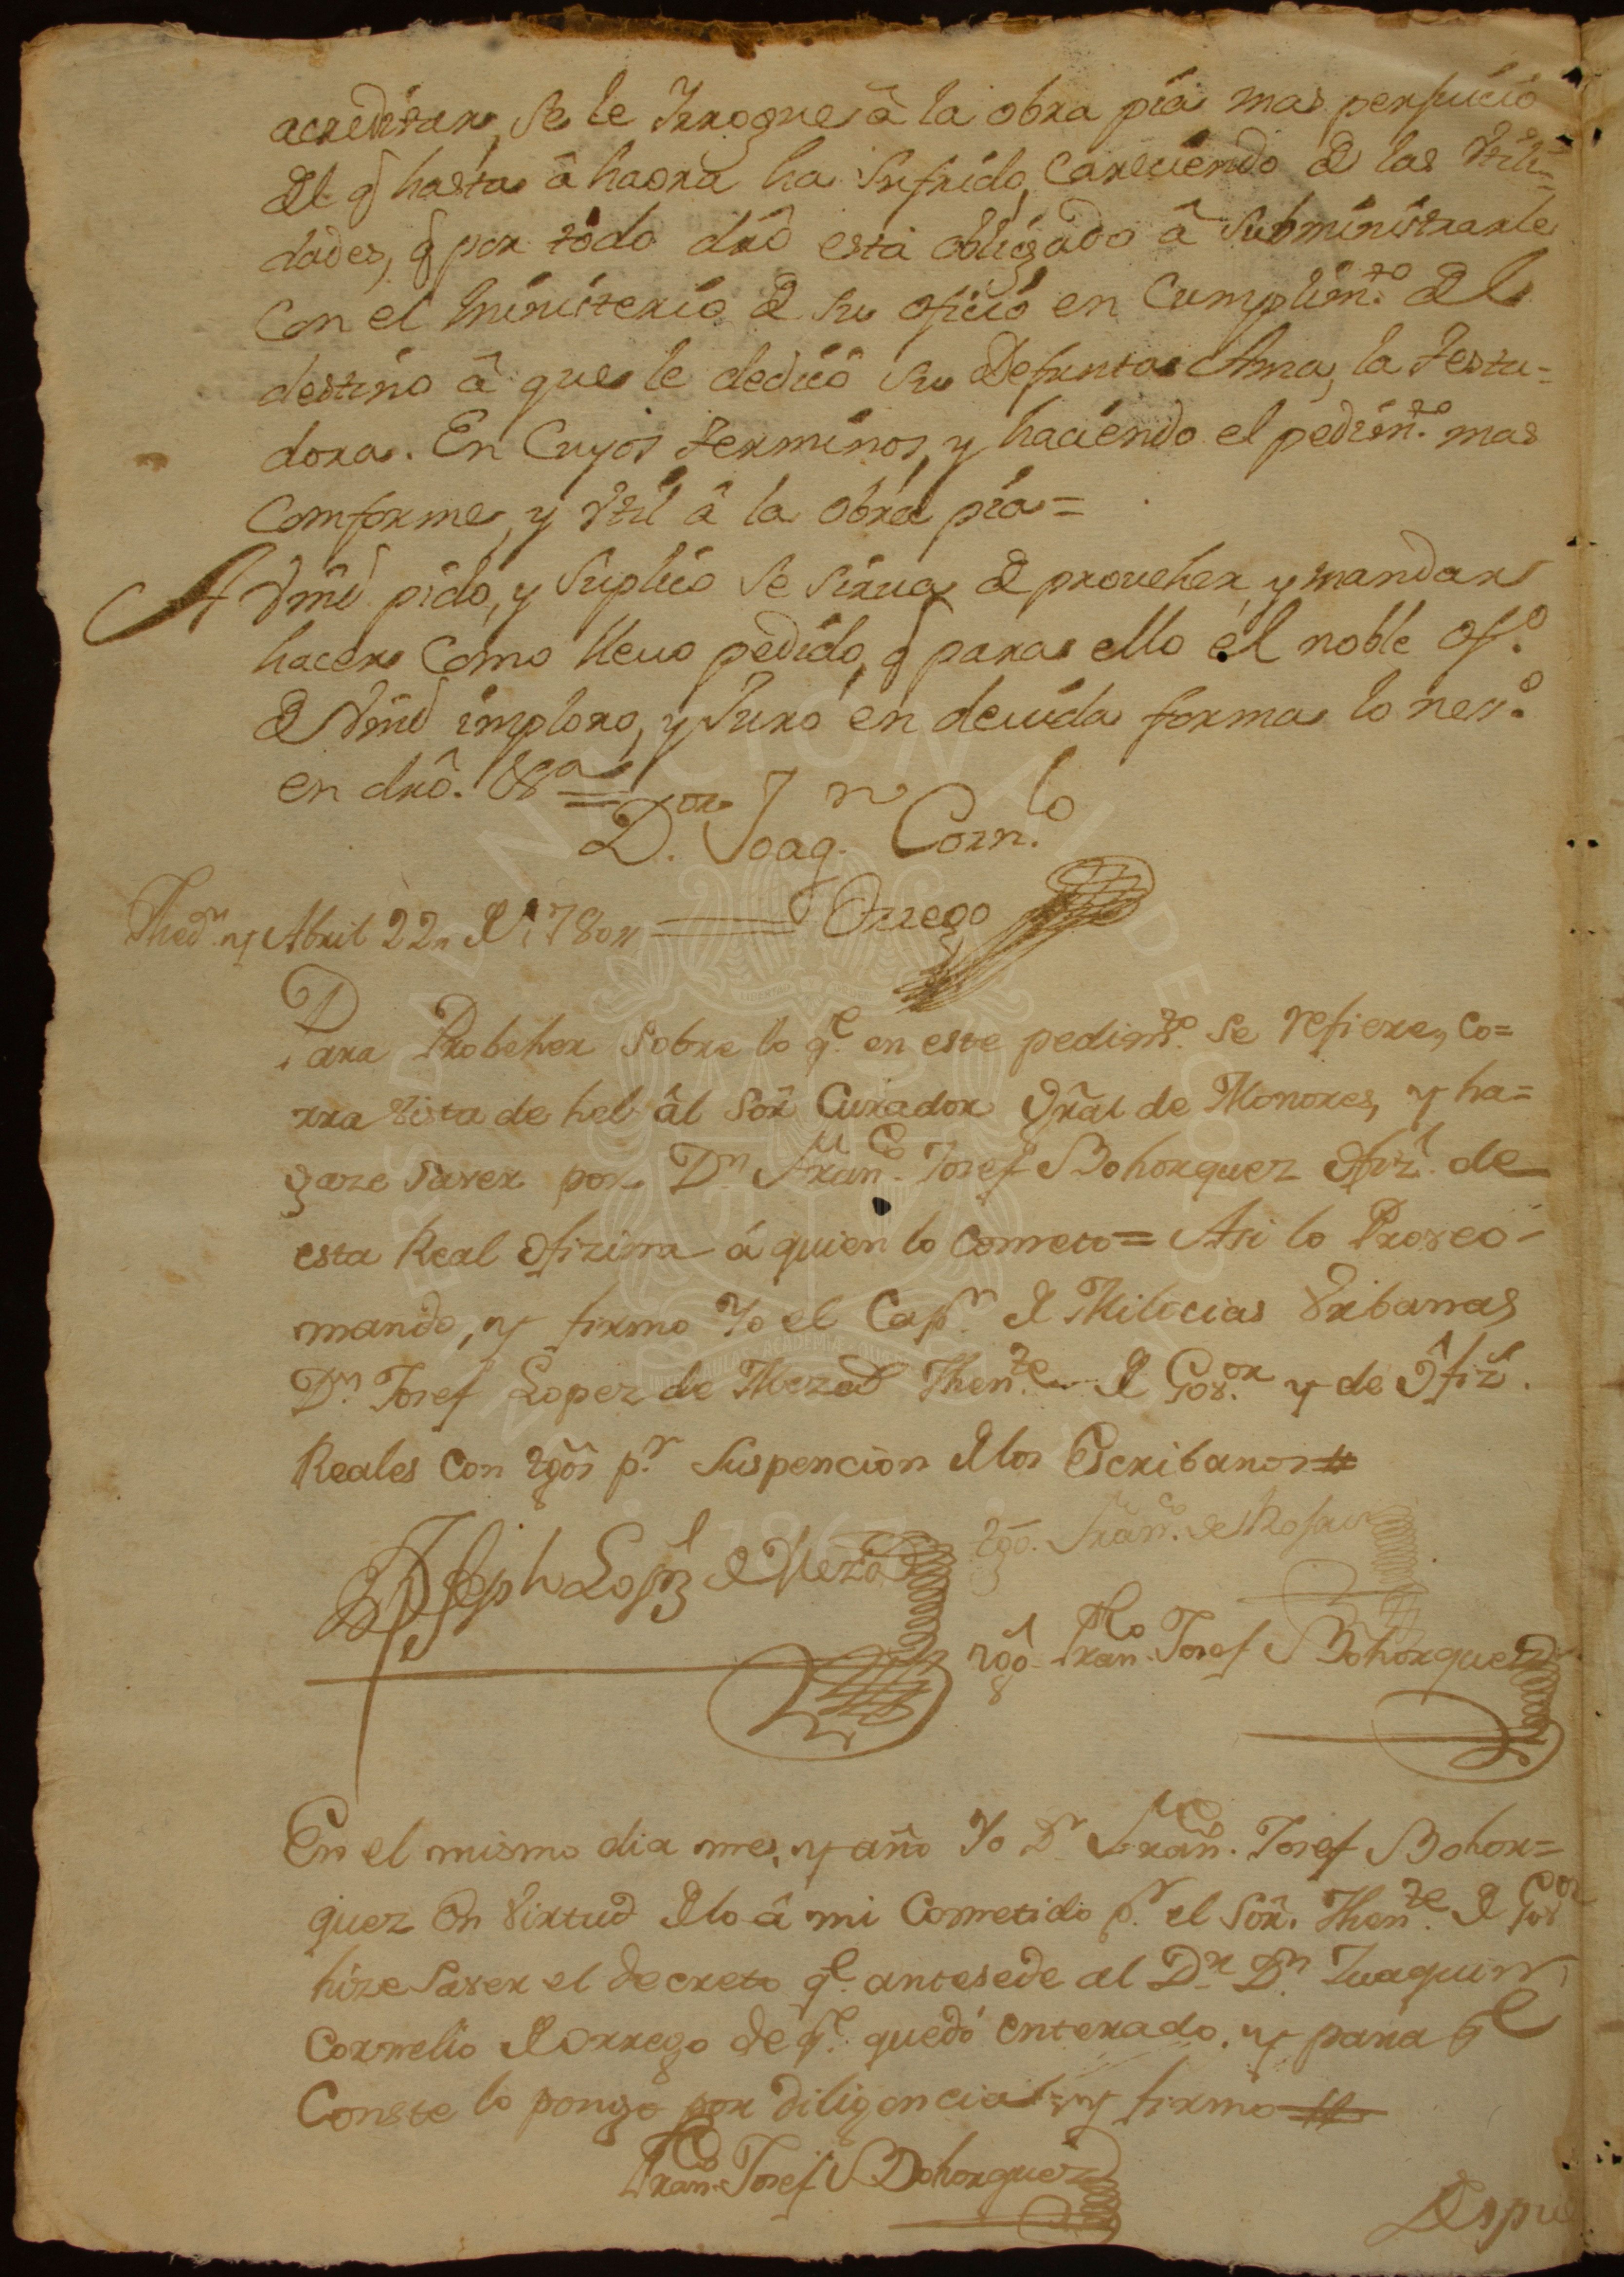 acreditar, se le Yrrogue â la obra pía mas perjuicio
del q̃ hasta âhaora ha sufrido, careciendo de las Vtili=
dades, q̃ por todo drô está obligado â subministrarle
con el ministerio de su oficio en Cumplim.to del
destino â que le dedicó su Defunta Ama, la Testa=
dora. En Cuyos terminos, y haciendo el pedim.to mas
comforme, y Vtil â la obra pía=
A Vmd pido, y suplico se sirua de proueher, y mandar
hacer como lleuo pedido, q̃ para ello el noble of.o
de Vmd imploro, y Juro en deuida forma lo nes.o
en drô. V8.a =
D.or Joaq.n Corn.lo
Orrego
Thed.n y Abril 22,, de 1780,,
Para Probeher sobre lo q.e en este pedim.to se refiere, co=
rra vista de hel âl Sor̃ Curador Gral de Monores, y ha=
gaze saver por D.n Fran.co Josef Bohorquez Ofiz.l de
esta Real Ofizina á quien lo cometo= Asi lo Proveo
mando, y firmo Yo el Cap.n de Milicias Vrbanas
D.n Josef Lopez de Meza Then.te de Gov.or y de Ofiz.s
Reales con tgôs p.r Suspencion de los Escribanos=
Joseph Lopz de Meza
tgo. Fran.co de
tgô. Fran.co Josef Bohorquez
En el mismo dia mes, y año Yo D.n Fran.co Josef Bohor=
quez en Virtud de lo â mi Cometido p.r el Sor̃. Then.te de Gov.or
hize saver el decreto q.e antesede al D.r D.n Juaquin
Cornelio de Orrego de q.e quedó enterado. y para q.e
Conste lo pongo por diligencia, y firmo=
Fran.co Josef Bohorquez
Despue
UNIVERSIDAD NACIONAL DE COLOMBIA
1867